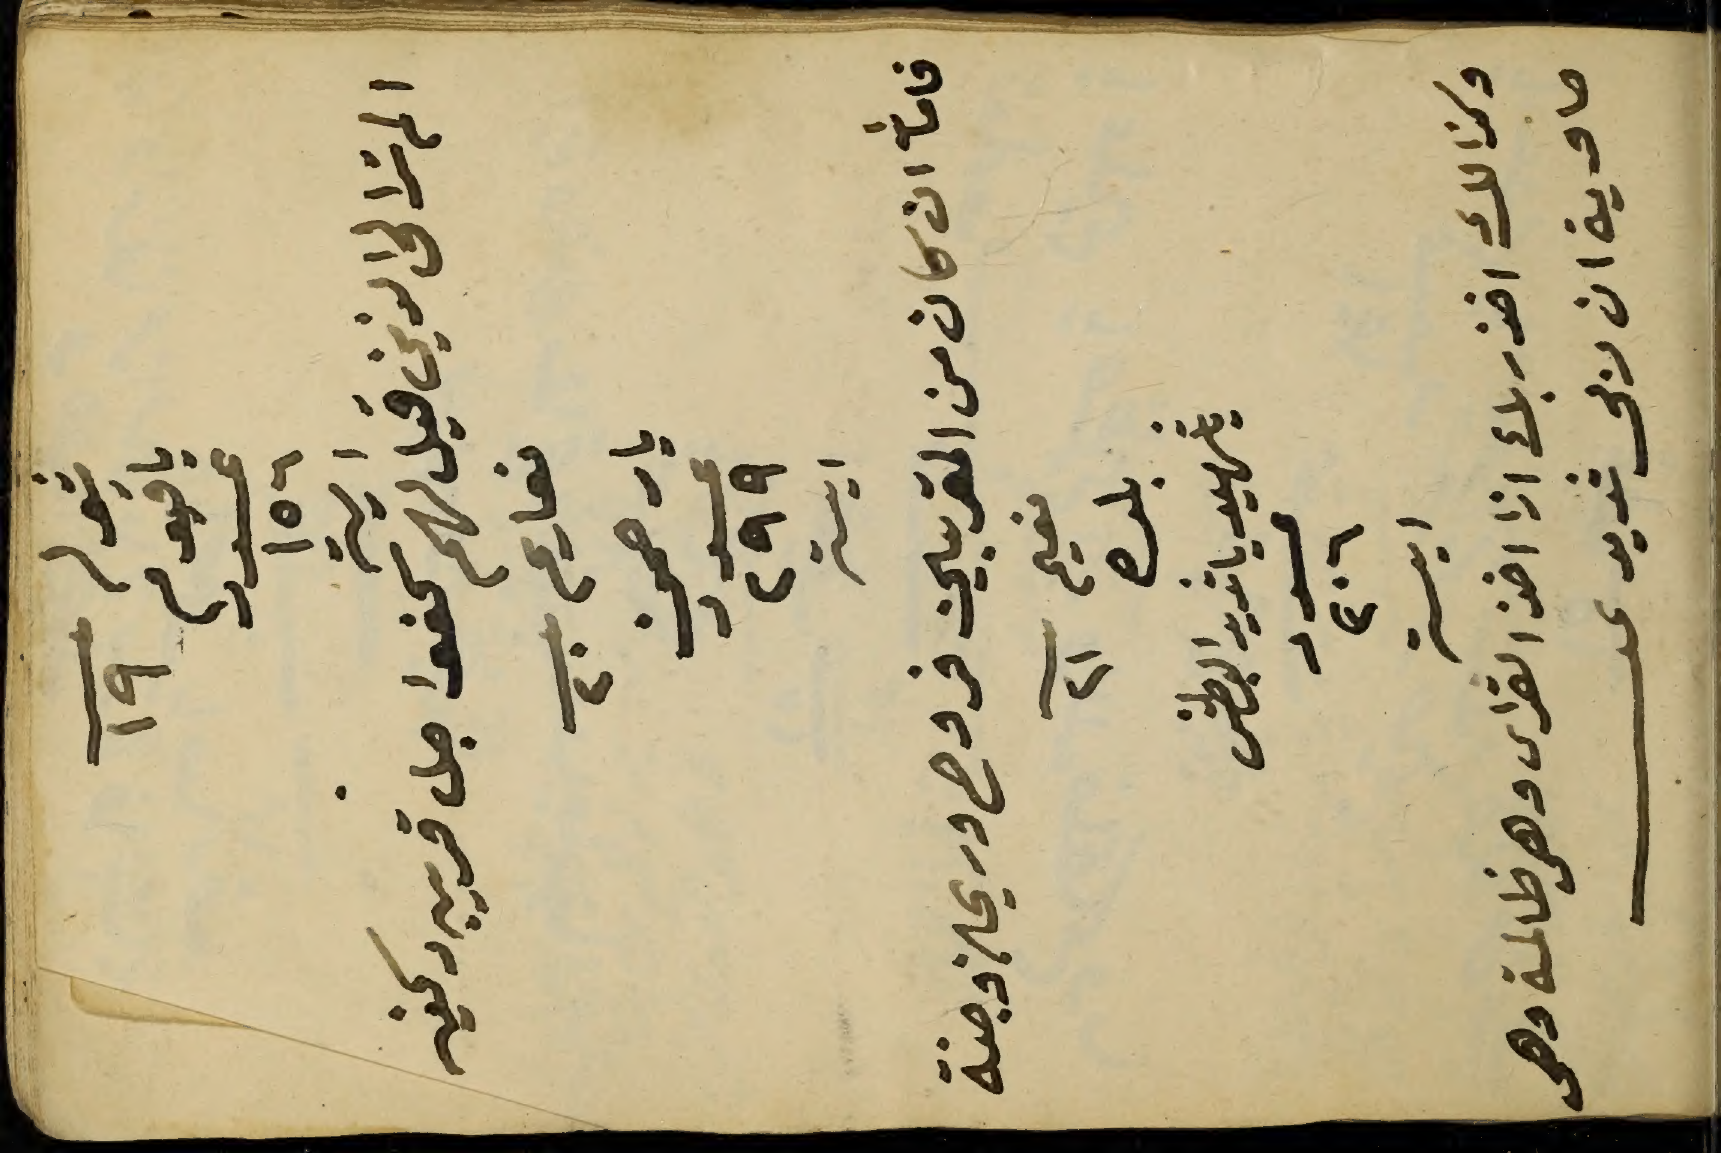 ١٩
يا قيوم
عدد
١٥٦
اية
الم ترا لى الذين قيل لهم كفوا
٢٠
يا رحمن
عدد
٢٩٩
اية
فاماه ان كان من المقربين فروح وريحان وجنة
نعيم
٢١
يا شديد البطش
عدد
٢٠٦
اية
وكذالك اخذ ربك اذا اخذ القراى وهى ظالمة وهى
حاوية ان ربى شديد